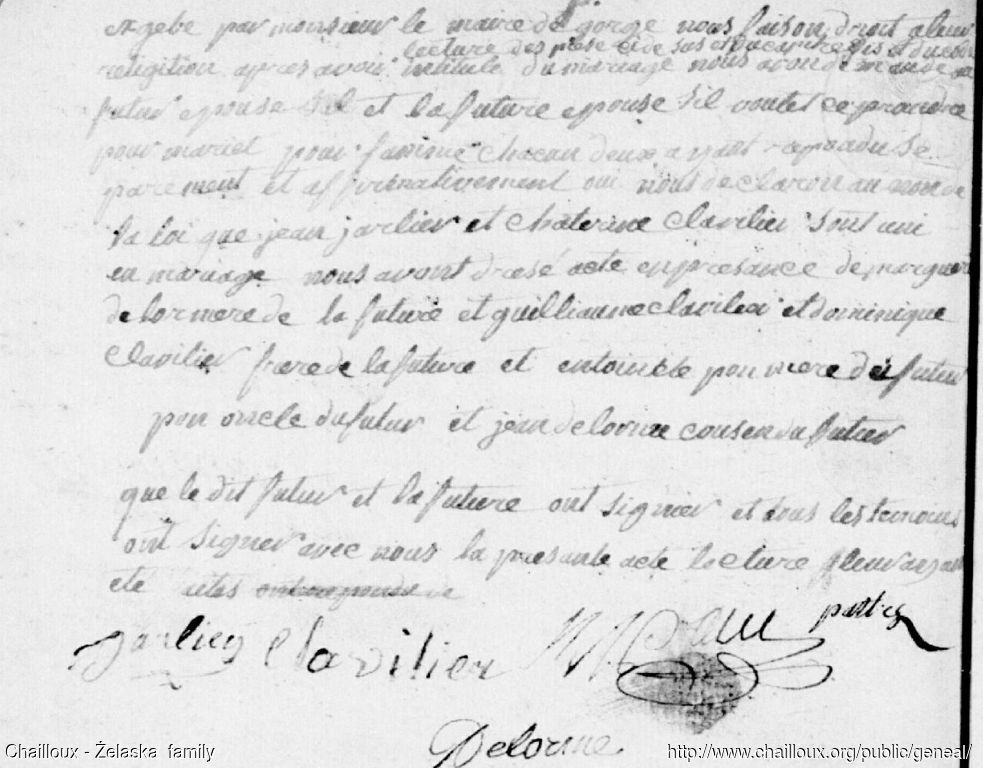 exgebe par monsieur le maire de gorge nous faison droit a leur
lecture des piese ci de sus et du
requgition apres avoir intitule du mariage nous avon demande au
futur epouse sil et la future epouse sil voulet ce prandre
pour mariet pour famme chacun deux ayant repondu se
parement et affirmativement oui nous declaron au non de
la loi que jean jarlier et chaterine Clavilier sont uni
en mariage nous avont dresé acte en presance de margueri
delor mere de la future et guilliaume Clavilier et dominique
Clavilier frere de la future et entoinete pou mere de futur
pou oncle du futur et jean delorme cousen du futur
que le dit futur et la future ont signier et tous les temouis
ont signer avec nous la presante acte lecture leur ayant
ete
jarlier Clavilier
Delorme
Chailloux - Želaska family
http://www.chailloux.org/public/geneal/